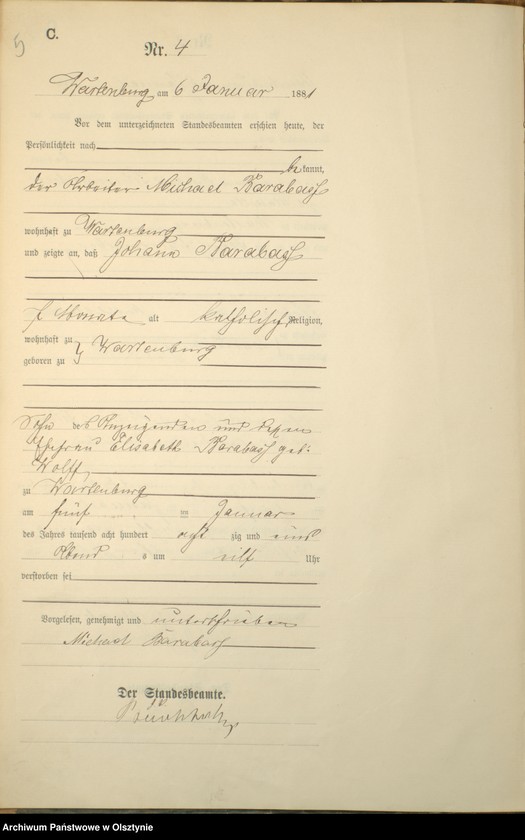 5
C.
Nr. 4
Wartenburg am 6 Januar 1881
Vor dem unterzeichneten Standesbeamten erschien heute, der
Persönlichkeit nach
be kannt,
der Arbeiter Michael Barabasz
wohnhaft zu Wartenburg
und zeigte an, daß Johann Barabasz
Monate alt katholischer Religion,
wohnhaft zu
geboren zu Wartenburg
Sohn des Anzeigenden und dessen
Ehefrau Elisabeth Barabasz geb.
Wolff
zu Wartenburg
am fünf ten Januar
des Jahres tausend acht hundert acht zig und eins
Abend s um elf Uhr
verstorben sei
Vorgelesen, genehmigt und unterschrieben
Michael Barabasz
Der Standesbeamte.
Archiwum Państwowe w Olsztynie